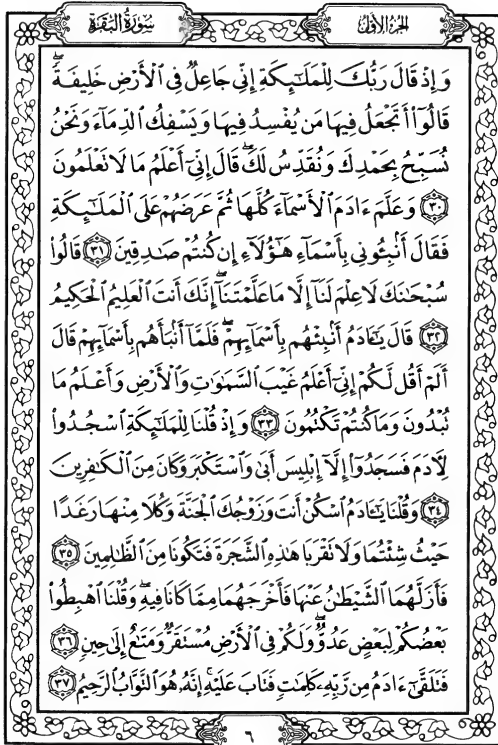 الجزء الأول
سورة البقرة
وَإِذْ قَالَ رَبُّكَ لِلْمَلَٰٓئِكَةِ إِنِّى جَاعِلٌ فِى ٱلْأَرْضِ خَلِيفَةً ۖ
قَالُوٓا۟ أَتَجْعَلُ فِيهَا مَن يُفْسِدُ فِيهَا وَيَسْفِكُ ٱلدِّمَآءَ وَنَحْنُ
نُسَبِّحُ بِحَمْدِكَ وَنُقَدِّسُ لَكَ ۖ قَالَ إِنِّىٓ أَعْلَمُ مَا لَا تَعْلَمُونَ
﴿٣٠﴾ وَعَلَّمَ ءَادَمَ ٱلْأَسْمَآءَ كُلَّهَا ثُمَّ عَرَضَهُمْ عَلَى ٱلْمَلَٰٓئِكَةِ
فَقَالَ أَنۢبِـُٔونِى بِأَسْمَآءِ هَٰٓؤُلَآءِ إِن كُنتُمْ صَٰدِقِينَ ﴿٣١﴾ قَالُوا۟
سُبْحَٰنَكَ لَا عِلْمَ لَنَآ إِلَّا مَا عَلَّمْتَنَآ ۖ إِنَّكَ أَنتَ ٱلْعَلِيمُ ٱلْحَكِيمُ
﴿٣٢﴾ قَالَ يَٰٓـَٔادَمُ أَنۢبِئْهُم بِأَسْمَآئِهِمْ ۖ فَلَمَّآ أَنۢبَأَهُم بِأَسْمَآئِهِمْ قَالَ
أَلَمْ أَقُل لَّكُمْ إِنِّىٓ أَعْلَمُ غَيْبَ ٱلسَّمَٰوَٰتِ وَٱلْأَرْضِ وَأَعْلَمُ مَا
تُبْدُونَ وَمَا كُنتُمْ تَكْتُمُونَ ﴿٣٣﴾ وَإِذْ قُلْنَا لِلْمَلَٰٓئِكَةِ ٱسْجُدُوا۟
لِـَٔادَمَ فَسَجَدُوٓا۟ إِلَّآ إِبْلِيسَ أَبَىٰ وَٱسْتَكْبَرَ وَكَانَ مِنَ ٱلْكَٰفِرِينَ
﴿٣٤﴾ وَقُلْنَا يَٰٓـَٔادَمُ ٱسْكُنْ أَنتَ وَزَوْجُكَ ٱلْجَنَّةَ وَكُلَا مِنْهَا رَغَدًا
حَيْثُ شِئْتُمَا وَلَا تَقْرَبَا هَٰذِهِ ٱلشَّجَرَةَ فَتَكُونَا مِنَ ٱلظَّٰلِمِينَ ﴿٣٥﴾
فَأَزَلَّهُمَا ٱلشَّيْطَٰنُ عَنْهَا فَأَخْرَجَهُمَا مِمَّا كَانَا فِيهِ ۖ وَقُلْنَا ٱهْبِطُوا۟
بَعْضُكُمْ لِبَعْضٍ عَدُوٌّ ۖ وَلَكُمْ فِى ٱلْأَرْضِ مُسْتَقَرٌّ وَمَتَٰعٌ إِلَىٰ حِينٍ ﴿٣٦﴾
فَتَلَقَّىٰٓ ءَادَمُ مِن رَّبِّهِۦ كَلِمَٰتٍ فَتَابَ عَلَيْهِ ۚ إِنَّهُۥ هُوَ ٱلتَّوَّابُ ٱلرَّحِيمُ ﴿٣٧﴾
٦